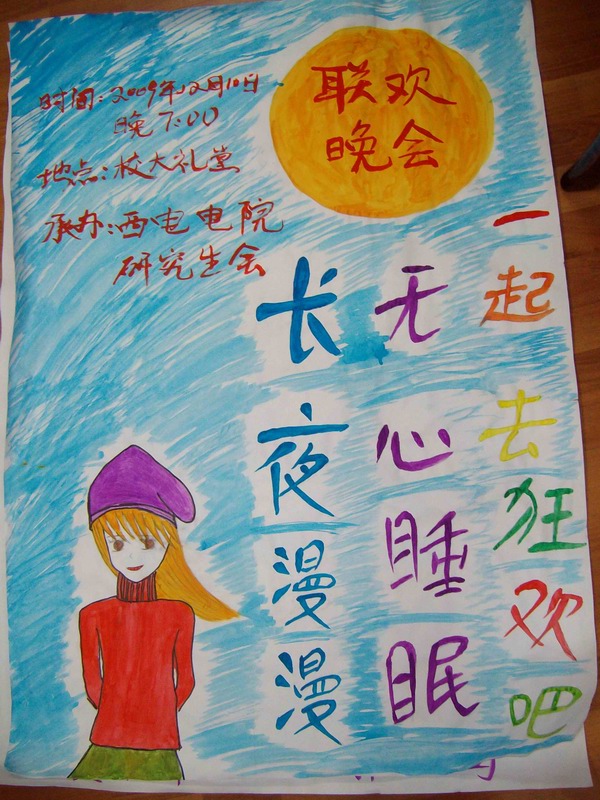 联欢
晚会
时间:2009年12月10日
晚7:00
地点:校大礼堂
承办:西电电院
研究生会
长夜漫漫
无心睡眠
一起去狂欢吧